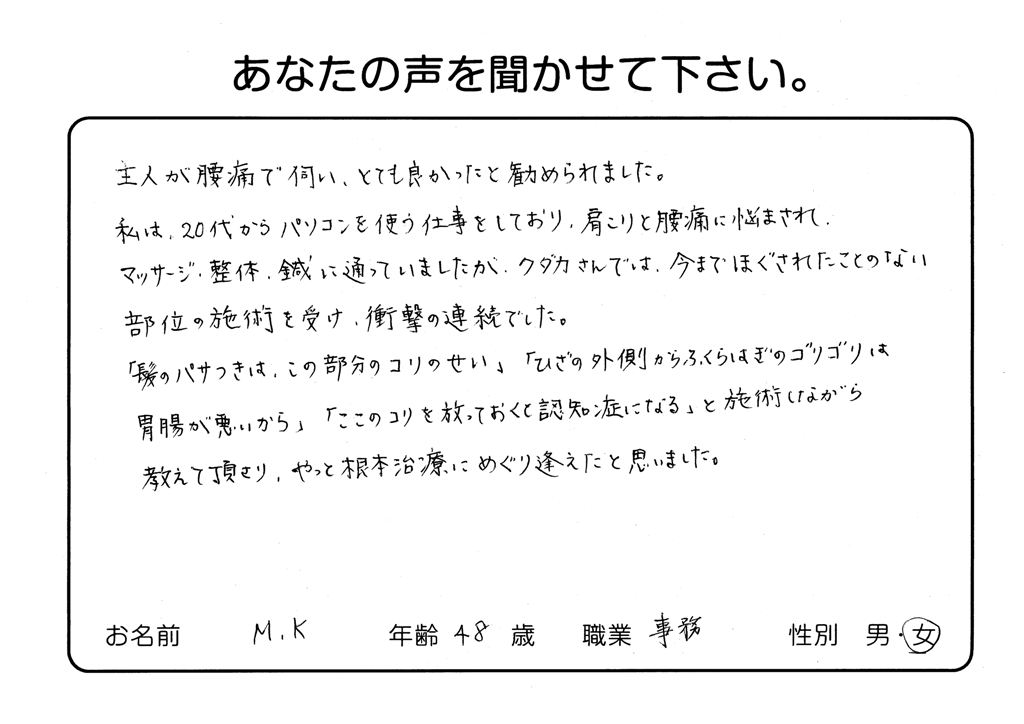 あなたの声を聞かせて下さい。
主人が腰痛で伺い、とても良かったと勧められました。
私は、20代からパソコンを使う仕事をしており、肩こりと腰痛に悩まされ、
マッサージ、整体、鍼に通っていましたが、クダカさんでは、今までほぐされたことのない
部位の施術を受け、衝撃の連続でした。
「髪のパサつきは、この部分のコリのせい」「ひざの外側からふくらはぎのゴリゴリは
胃腸が悪いから」「ここのコリを放っておくと認知症になる」と施術しながら
教えて頂き、やっと根本治療にめぐり逢えたと思いました。
お名前 M.K 年齢 48 歳 職業 事務 性別 男・女